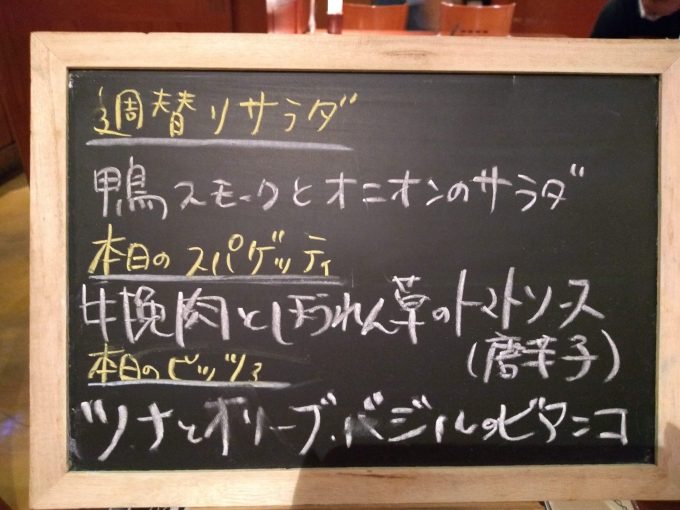 週替りサラダ
鴨スモークとオニオンのサラダ
本日のスパゲッティ
牛挽肉とほうれん草のトマトソース
(唐辛子)
本日のピッツァ
ツナとオリーブ、バジルのビアンコ